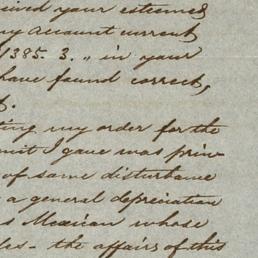 ceived your esteemed
my account current
1385. 3. „ in your
have found correct,
ting my order for the
mit I gave was prin-
of some disturbance
a general depreciation
s Mexican whose
les - the affairs of this